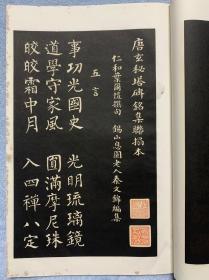 唐玄秘塔碑銘集聯搨本
仁和葉爾愷撰句 錫山息園老人秦文錦編集
五言
事功光國史 光明琉璃鏡
道學守家風 圓滿摩尼珠
皎皎霜中月 入四禪八定